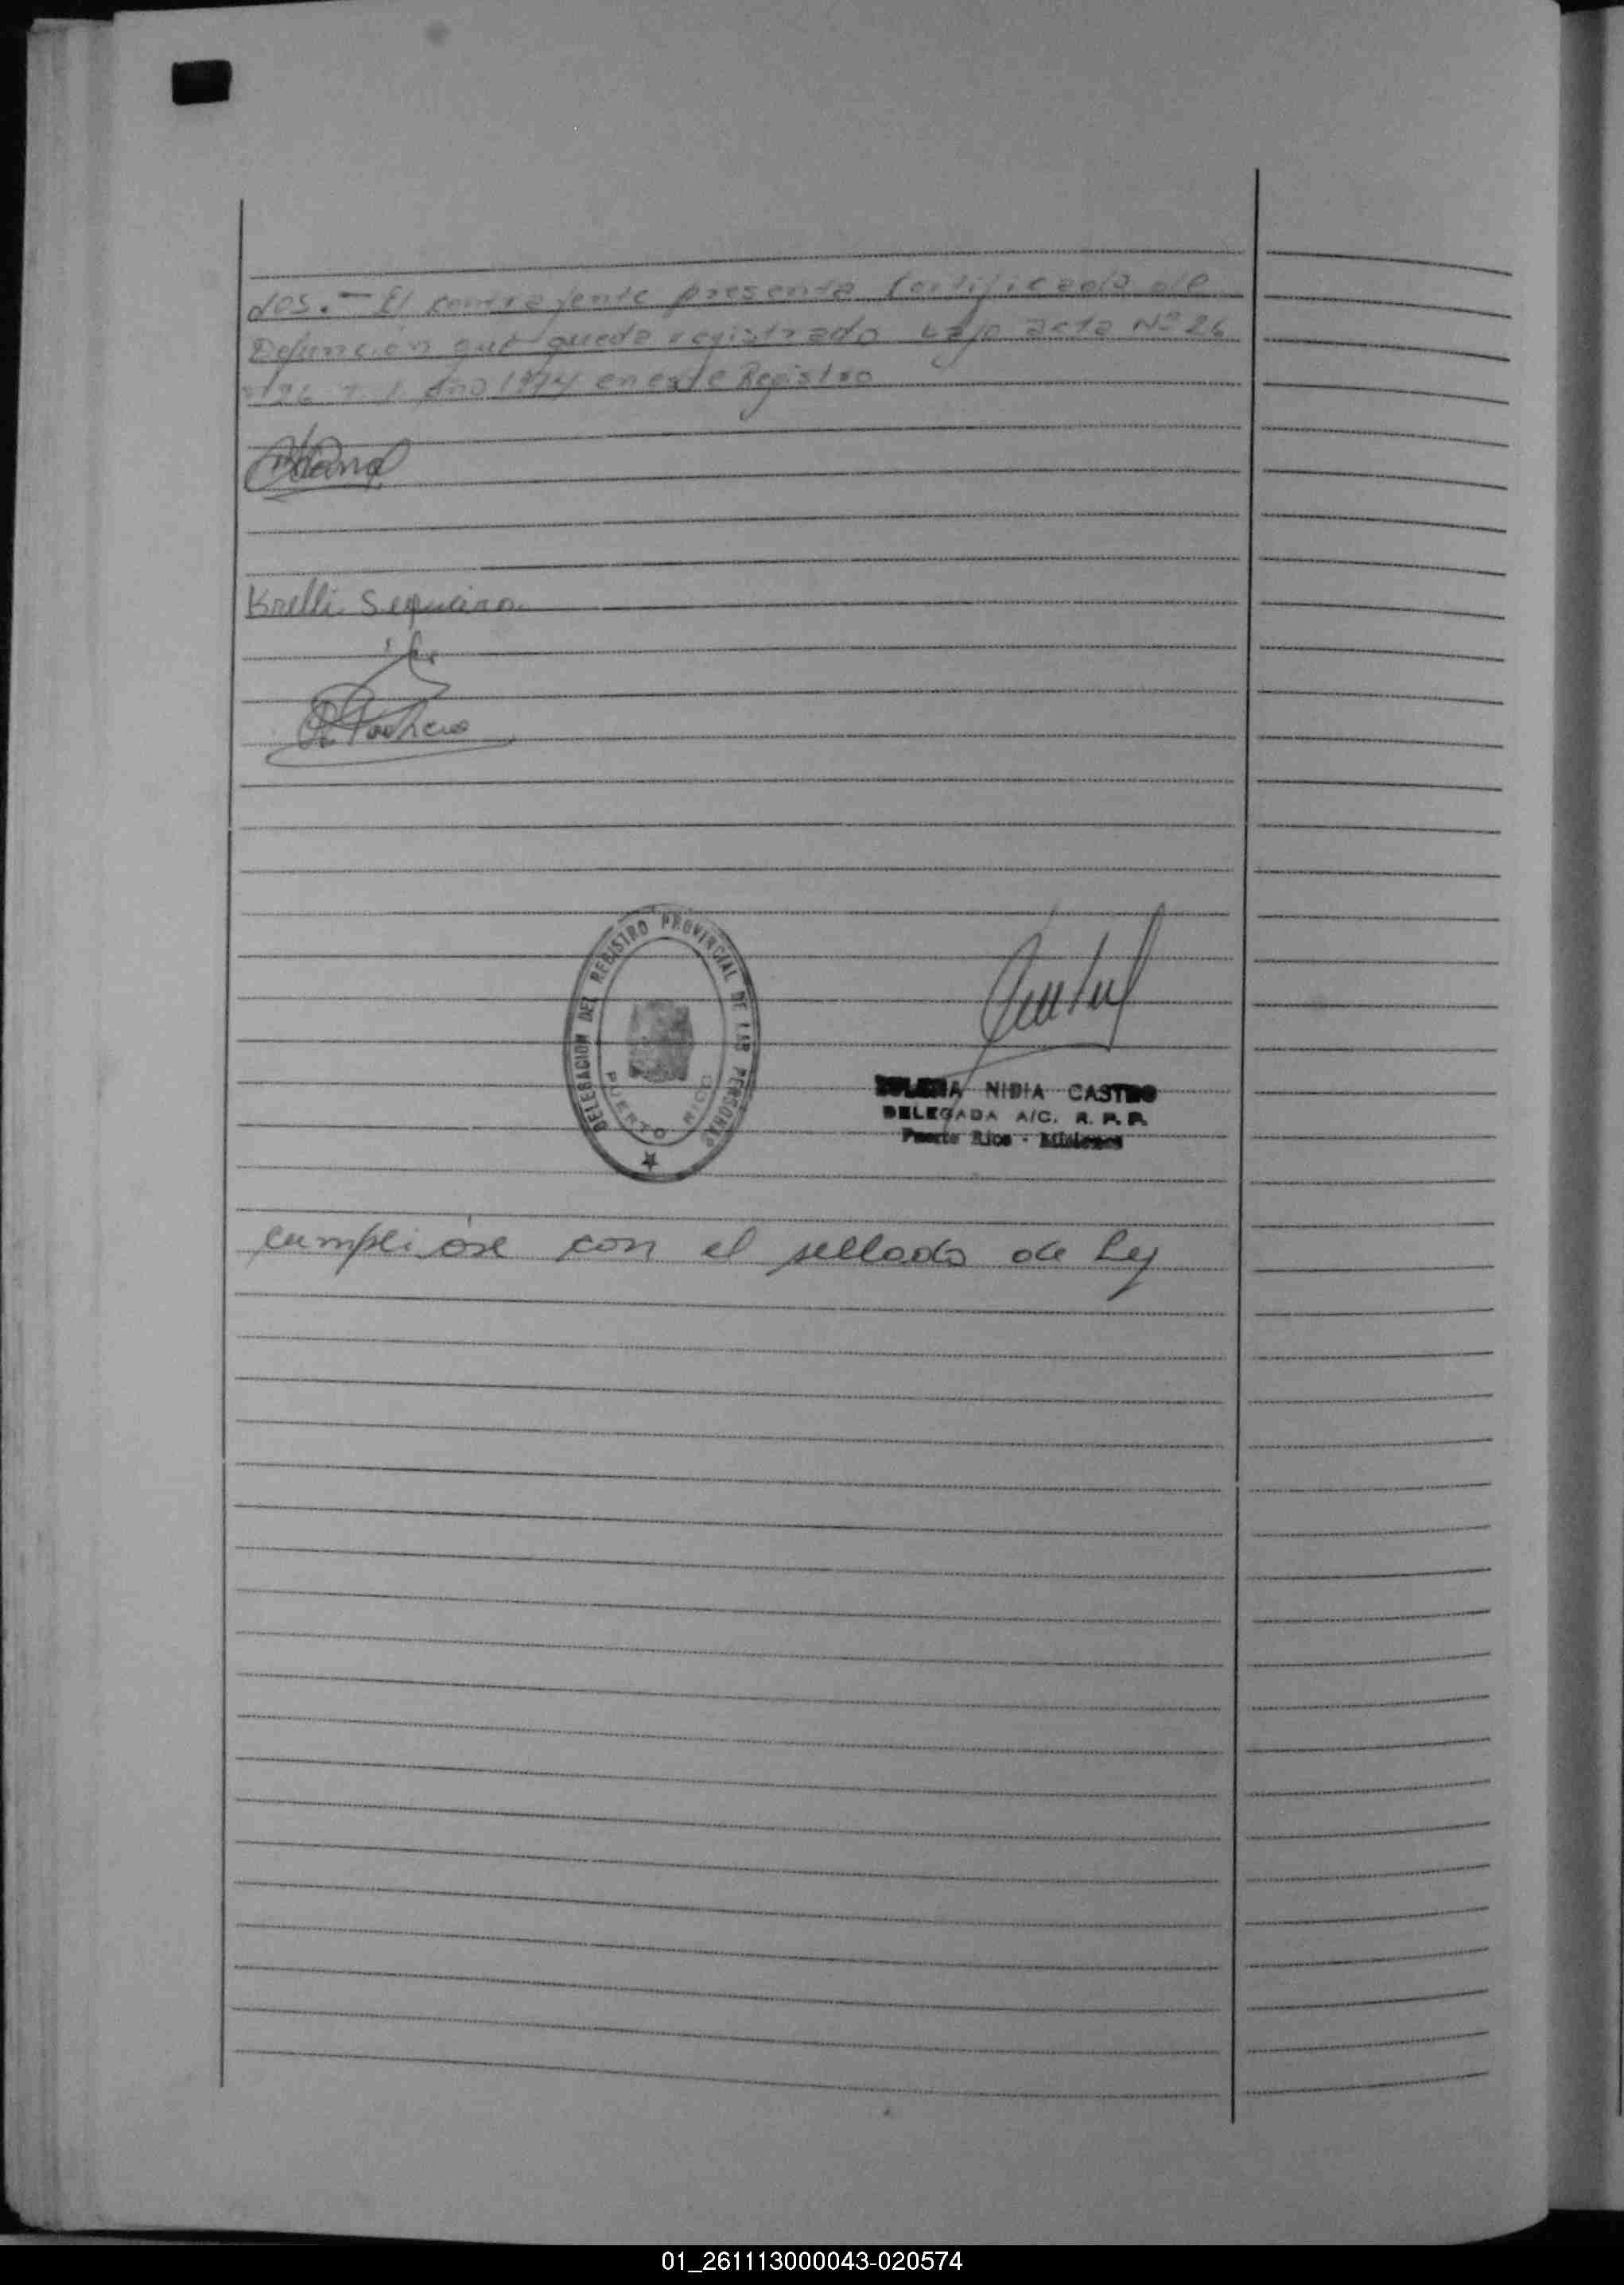 dos.- El contrayente presenta Certificado de
Defunción que queda registrado bajo acta Nº 26
Año 1974 en este Registro
Krelli Sequeira
DELEGACION DEL REGISTRO PROVINCIAL DE LAS PERSONAS
PUERTO RICO
NIDIA CASTRO
DELEGADA A/C. R. P. P.
Puerto Rico - Misiones
cumplióse con el sellado de Ley
01_261113000043-020574